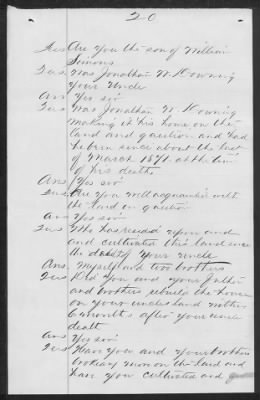 20
Ques Are you the son of William
Simons
Ques Was Jonathan W. Downing
your Uncle
Ans Yes sir
Ques Was Jonathan W. Downing
making it his home on the
land and question and had
he been since about the last
of March 1871 at the time
of his death
Ans Yes sir
Ques Are you well acquainted with
the land in question
Ans Yes sir
Ques Who has resided upon and
and cultivated this land since
the death of your uncle
Ans. Myself and two brothers
Ques Did you and your father
and brothers rebuild the house
on your uncles land within
6 months after your uncle
death
Ans Yes sir
Ques Have you and your brothers
broken more on the land and
have you cultivated and